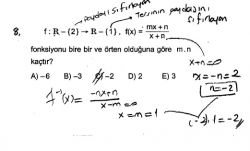 paydayı sıfırlayan
Tersinin paydasını
sıfırlayan
8. f : R – {2} → R – {1}, f(x) = mx+n / x+n
fonksiyonu bire bir ve örten olduğuna göre m.n
kaçtır?
A) –6 B) –3 C) –2 D) 2 E) 3
x+n=0
x=-n=2
n=-2
f⁻¹(x) = -nx+n / x-m=0
x=m=1
(-2).1=-2